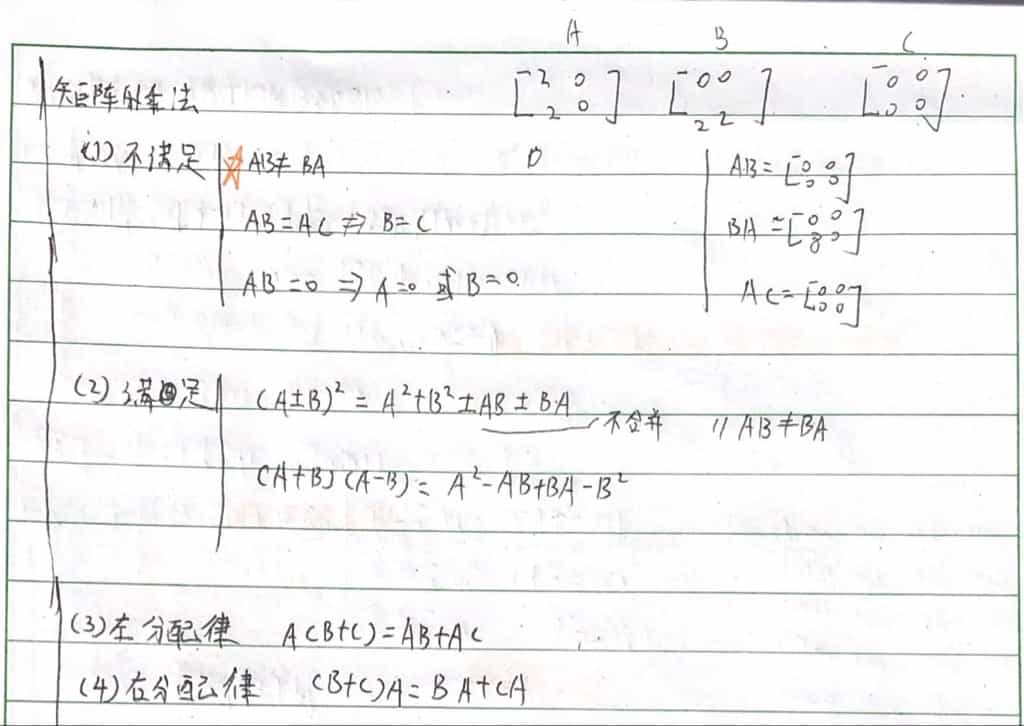 A B C
矩阵的乘法 [2 0 [0 0 [0 0
2 0] 2 2] 0 0]
(1) 不满足 ☆ AB≠BA 0 AB=[0 0
0 0]
AB=AC ⇏ B=C BA=[0 0
8 0]
AB=0 ⇒ A=0 或 B=0 AC=[0 0
0 0]
(2) 满足 (A±B)²=A²+B²±AB±BA 不合并 // AB≠BA
(A+B)(A-B)=A²-AB+BA-B²
(3) 左分配律 A(B+C)=AB+AC
(4) 右分配律 (B+C)A=BA+CA